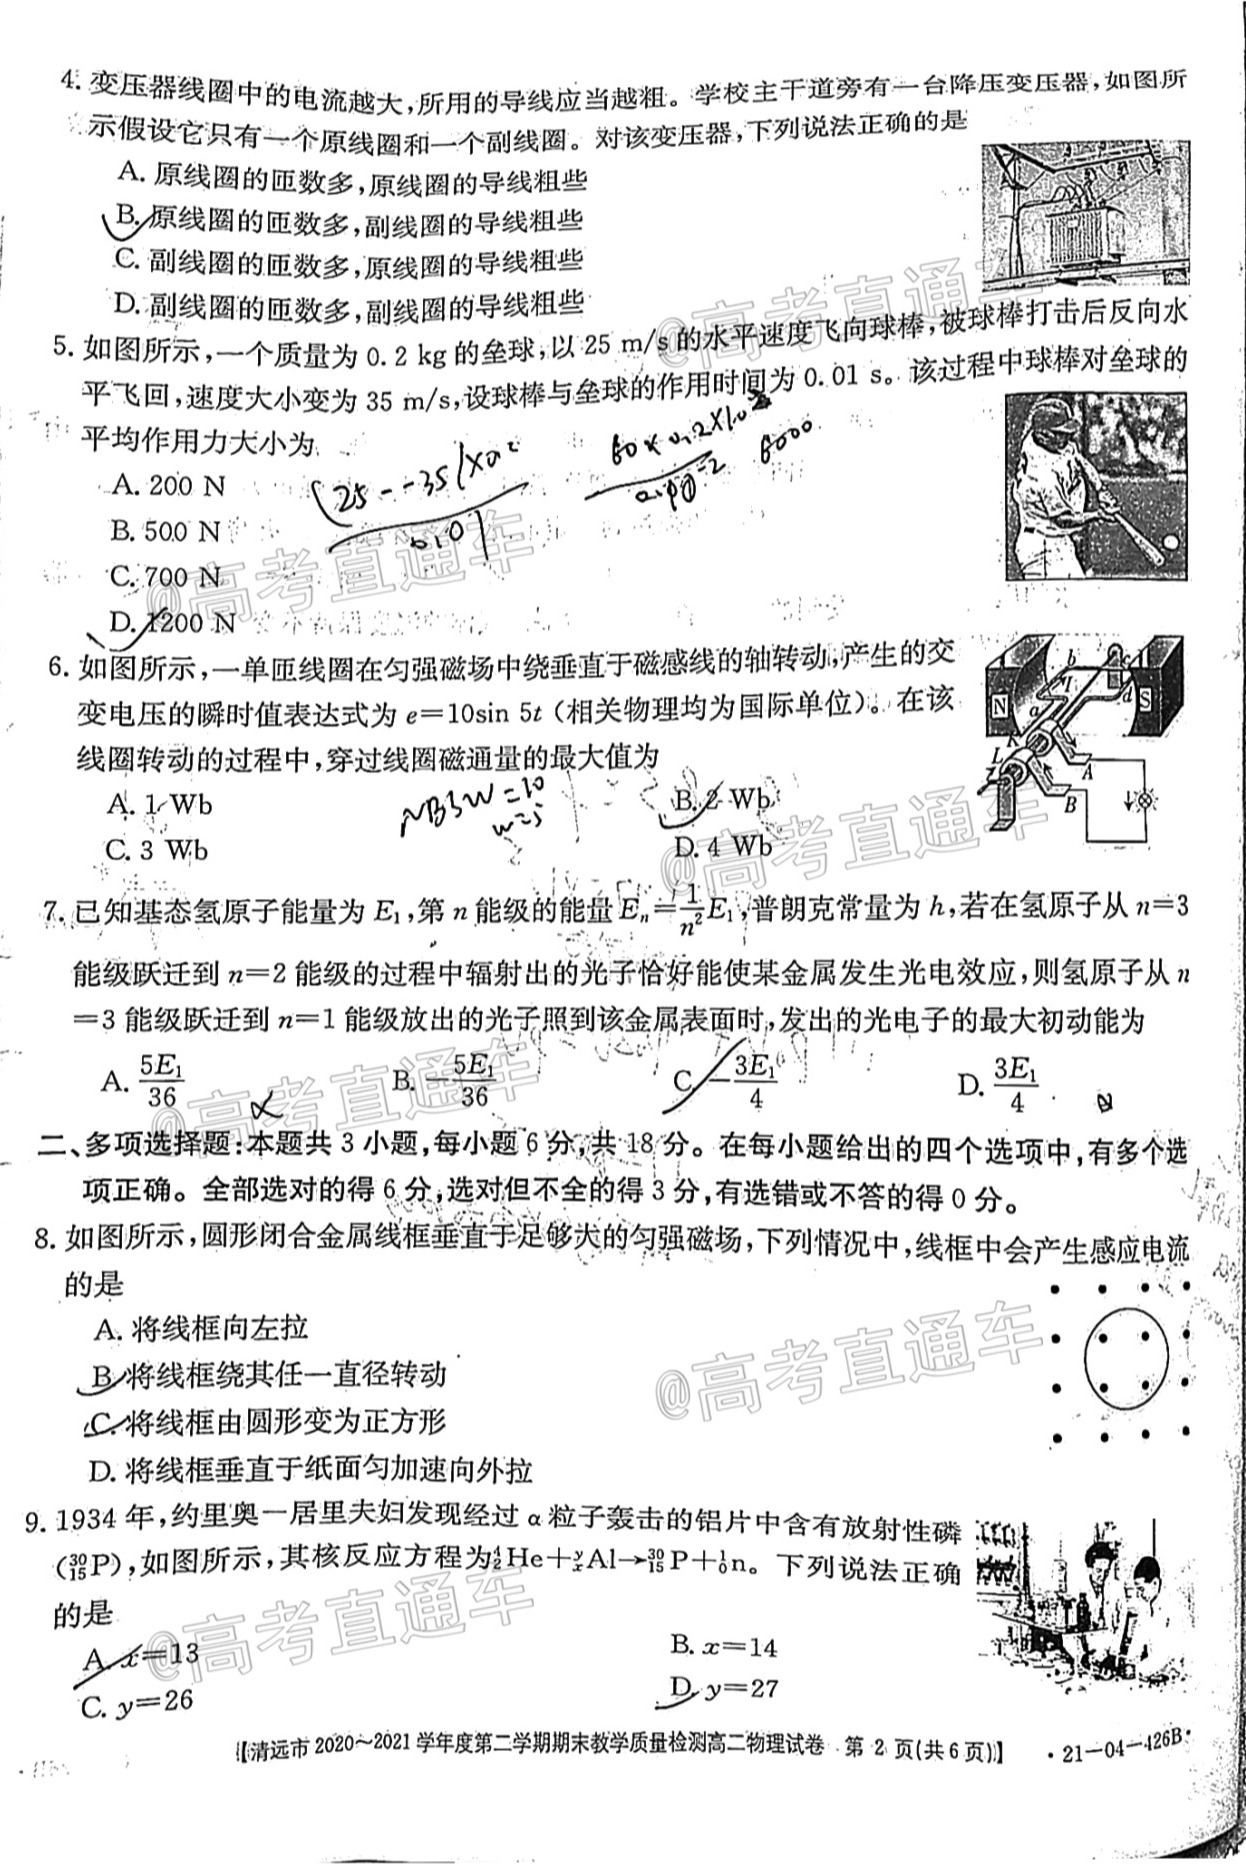 4. 变压器线圈中的电流越大,所用的导线应当越粗。学校主干道旁有一台降压变压器,如图所
示假设它只有一个原线圈和一个副线圈。对该变压器,下列说法正确的是
A. 原线圈的匝数多,原线圈的导线粗些
B. 原线圈的匝数多,副线圈的导线粗些
C. 副线圈的匝数多,原线圈的导线粗些
D. 副线圈的匝数多,副线圈的导线粗些
@高考直通车
5. 如图所示,一个质量为 0.2 kg 的垒球,以 25 m/s 的水平速度飞向球棒,被球棒打击后反向水
平飞回,速度大小变为 35 m/s,设球棒与垒球的作用时间为 0.01 s。该过程中球棒对垒球的
平均作用力大小为
A. 200 N
B. 500 N
C. 700 N
D. 1200 N
@高考直通车
6. 如图所示,一单匝线圈在匀强磁场中绕垂直于磁感线的轴转动,产生的交
变电压的瞬时值表达式为 e=10sin 5t (相关物理均为国际单位)。在该
线圈转动的过程中,穿过线圈磁通量的最大值为
A. 1 Wb
B. 2 Wb
C. 3 Wb
D. 4 Wb
N b c a d S K L A B
@高考直通车
7. 已知基态氢原子能量为 E₁,第 n 能级的能量 Eₙ=1/n² E₁,普朗克常量为 h,若在氢原子从 n=3
能级跃迁到 n=2 能级的过程中辐射出的光子恰好能使某金属发生光电效应,则氢原子从 n
=3 能级跃迁到 n=1 能级放出的光子照到该金属表面时,发出的光电子的最大初动能为
A. 5E₁/36 B. -5E₁/36 C. -3E₁/4 D. 3E₁/4
@高考直通车
二、多项选择题:本题共 3 小题,每小题 6 分,共 18 分。在每小题给出的四个选项中,有多个选
项正确。全部选对的得 6 分,选对但不全的得 3 分,有选错或不答的得 0 分。
8. 如图所示,圆形闭合金属线框垂直于足够大的匀强磁场,下列情况中,线框中会产生感应电流
的是
A. 将线框向左拉
B. 将线框绕其任一直径转动
C. 将线框由圆形变为正方形
D. 将线框垂直于纸面匀加速向外拉
@高考直通车
9. 1934 年,约里奥一居里夫妇发现经过 α 粒子轰击的铝片中含有放射性磷
(³⁰₁₅P),如图所示,其核反应方程为⁴₂He+ʸₓAl→³⁰₁₅P+¹₀n。下列说法正确
的是
A. x=13
B. x=14
C. y=26
D. y=27
@高考直通车
【清远市 2020～2021 学年度第二学期期末教学质量检测高二物理试卷 第 2 页(共 6 页)】
·21-04-426B·